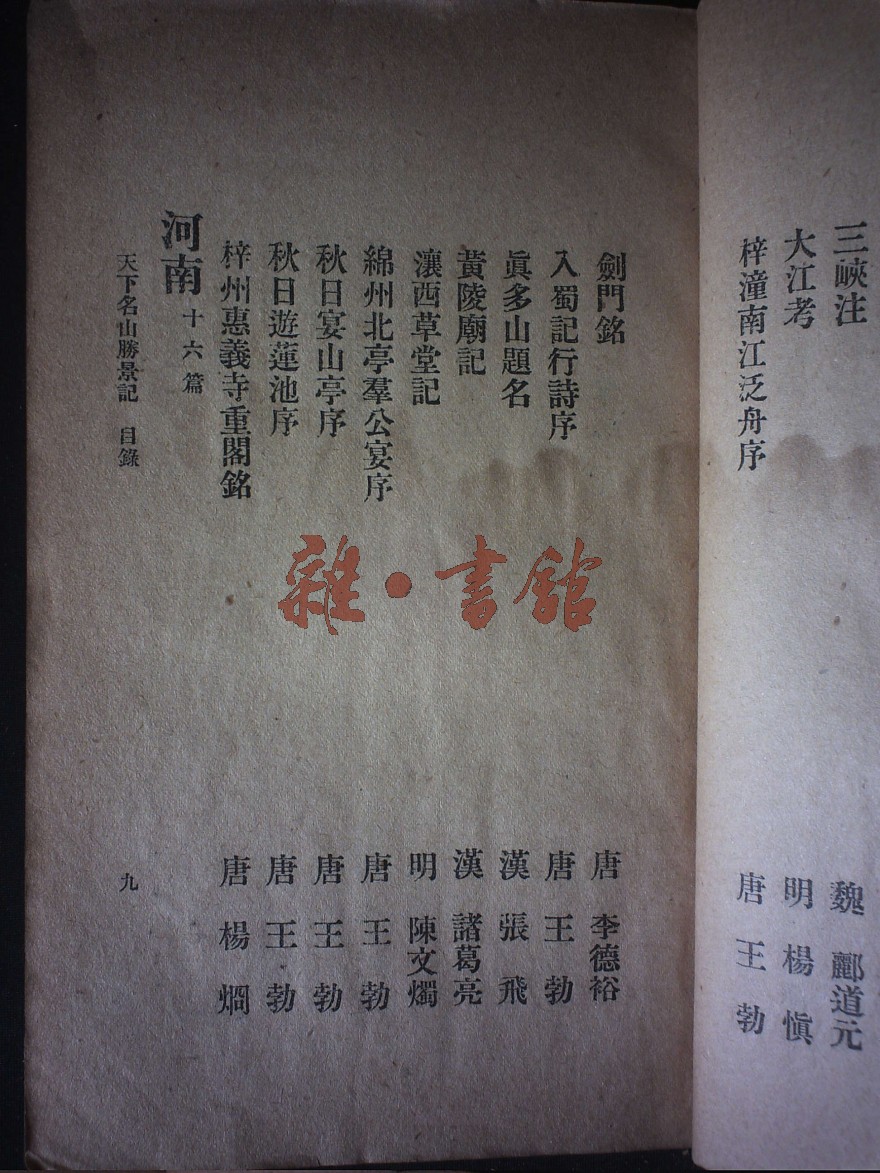 三峽注 魏 酈道元
大江考 明 楊愼
梓潼南江泛舟序 唐 王勃
劍門銘 唐 李德裕
入蜀記行詩序 唐 王勃
眞多山題名 漢 張飛
黃陵廟記 漢 諸葛亮
瀼西草堂記 明 陳文燭
綿州北亭羣公宴序 唐 王勃
秋日宴山亭序 唐 王勃
秋日遊蓮池序 唐 王勃
梓州惠義寺重閣銘 唐 楊烱
河南 十六篇
天下名山勝景記 目錄 九
雜·書館